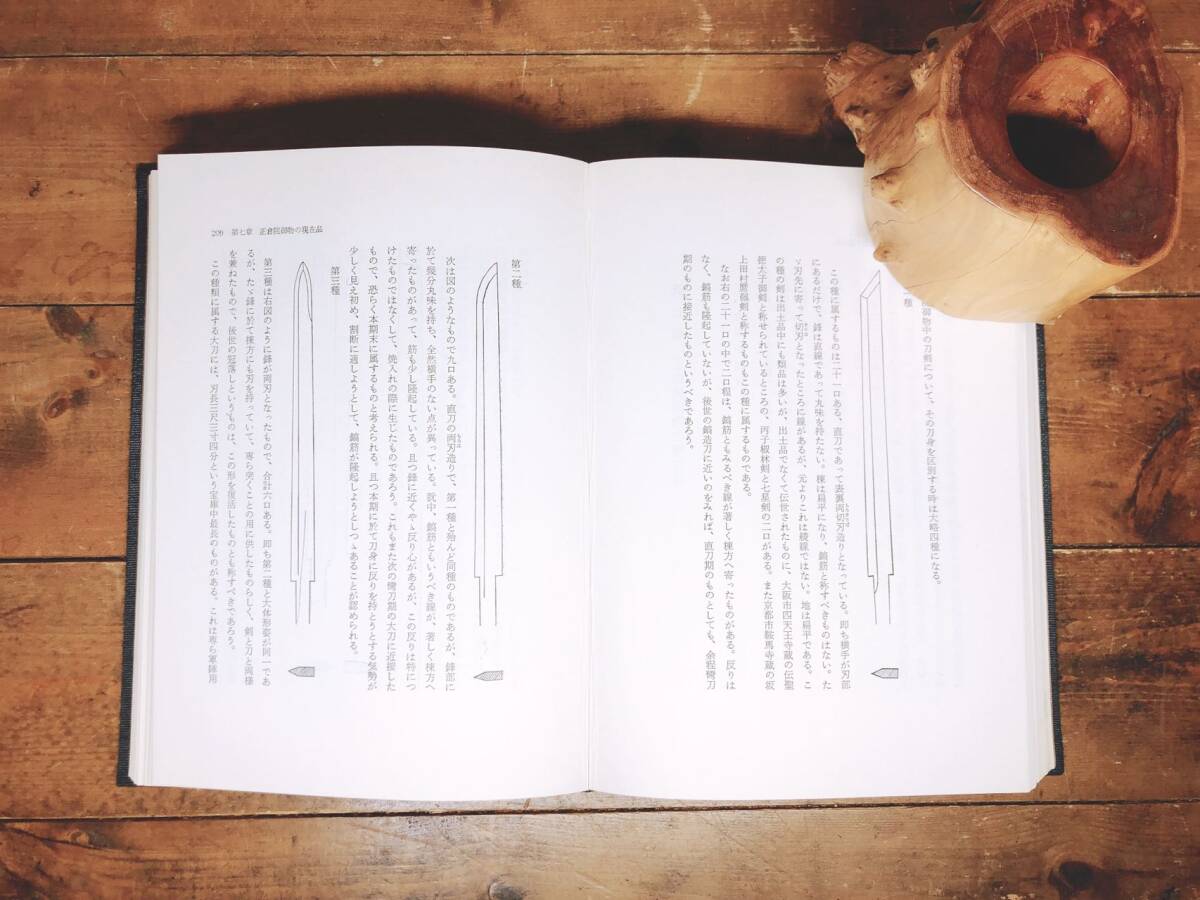 御物中の刀剣について、その刀身を区別する時は大略四種になる。
種
この種に属するものは二十一口ある。直刀であって表裏両切刃造りとなっている。即ち横手が刃部
にあるだけで、鋒は直線であって丸味を持たない。棟は扁平になり、鎬筋と称すべきものはない。た
ゞ刃先に寄って切刃となったところに線があるが、元よりこれは稜線ではない。地は扁平である。こ
の種の剣は出土品中にも類品は多いが、出土品でなくて伝世されたものに、大阪市四天王寺蔵の伝聖
徳太子御剣と称せられているところの、丙子椒林剣と七星剣の二口がある。また京都市鞍馬寺蔵の坂
上田村麿佩剣と称するものもこの種に属するものである。
なお右の二十一口の中で二口程は、鎬筋ともみるべき線が著しく棟方へ寄ったものがある。反りは
なく、鎬筋も隆起していないが、後世の鎬造刀に近いのをみれば、直刀期のものとしても、余程彎刀
期のものに接近したものというべきであろう。
209 第七章 正倉院御物の現在品
第二種
次は図のようなもので九口ある。直刀の両刃造りで、第一種と殆んど同種のものであるが、鋒部に
於て幾分丸味を持ち、全然横手のない点が異っている。就中、鎬筋ともいうべき線が、著しく棟方へ
寄ったものがあって、筋も少し隆起している。且つ鋒に近くやゝ反り心があるが、この反りは特につ
けたものではなくして、焼入れの際に生じたものであろう。これもまた次の彎刀期の太刀に近接した
もので、恐らく本期末に属するものと考えられる。且つ本期に於て刀身に反りを持とうとする気勢が
少しく見え初め、割断に適しようとして、鎬筋が隆起しようとしつゝあることが認められる。
第三種
第三種は右図のように鋒が両刃となったもので、合計六口ある。即ち第二種と大体形姿が同一であ
るが、たゞ鋒に於て棟方にも刃を持っていて、専ら突くことの用に供したものらしく、剣と刀と両様
を兼ねたもので、後世の冠落しというものは、この形を復活したものとも称すべきであろう。
この種類に属する大刀には、刃長三尺三寸四分という宝庫中最長のものがある。これは専ら軍陣用